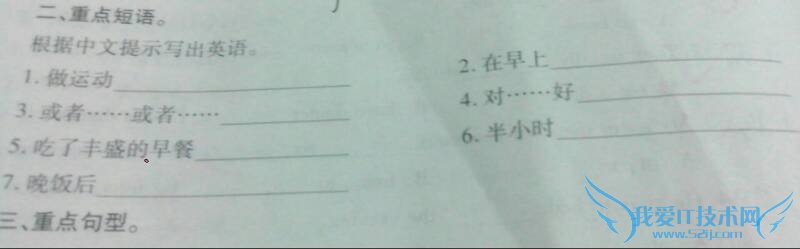 二、重点短语。
根据中文提示写出英语。
1. 做运动
2. 在早上
3. 或者……或者……
4. 对……好
5. 吃了丰盛的早餐
6. 半小时
7. 晚饭后
三、重点句型。
我爱IT技术网
www.52ij.com